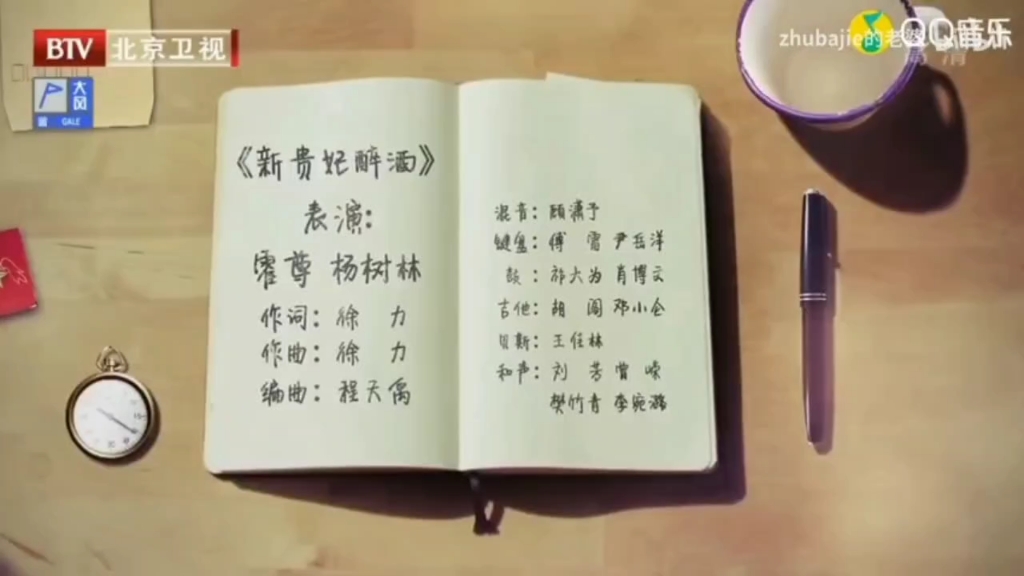 BTV 北京卫视
大风
GALE
zhubajie的老
QQ音乐
高清
《新贵妃醉酒》
表演:
霍尊 杨树林
作词: 徐 力
作曲: 徐 力
编曲: 程天禹
混音: 顾潇予
键盘: 傅 雷 尹岳洋
鼓: 祁大为 肖博文
吉他: 胡 阁 邓小会
贝斯: 王任林
和声: 刘 芳 曾 嵘
樊竹青 李宛潞